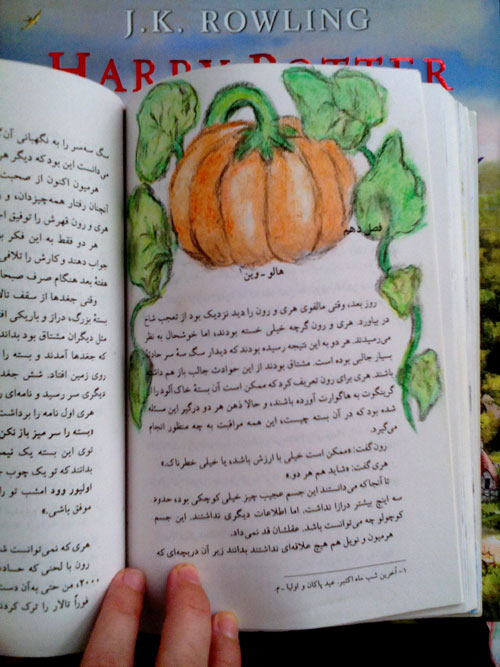 J.K. ROWLING
HARRY POTTER
فصل دهم
هالو-وین۱
روز بعد، وقتی مالفوی هری و رون را دید نزدیک بود از تعجب شاخ
در بیاورد. هری و رون گرچه خیلی خسته بودند، اما خوشحال به نظر
می‌رسیدند. هر دو به این نتیجه رسیده بودند که دیدار سگ سه سر حادثهٔ
بسیار جالبی بوده است. مشتاق بودند از این حوادث جالب باز هم داشته
باشند. هری برای رون تعریف کرد که ممکن است آن بستهٔ خاک‌آلود را از
گرینگوت به هاگوارت آورده باشند، و حالا ذهن هر دو درگیر این مسئله
شده بود که در آن بسته چیست، این همه مراقبت به چه منظور انجام
می‌گیرد.
رون گفت: «ممکن است خیلی با ارزش باشد، یا خیلی خطرناک.»
هری گفت: «شاید هم هر دو.»
تا آنجا که می‌دانستند این جسم عجیب چیز خیلی کوچکی بود، حدود
سه اینچ بیشتر درازا نداشت، اما اطلاعات دیگری نداشتند. این جسم
کوچولو چه می‌توانست باشد. عقلشان قد نمی‌داد.
هرمیون و نویل هم هیچ علاقه‌ای نداشتند بدانند زیر آن دریچه‌ای که
۱- آخرین شب ماه اکتبر. عید پاکان و اولیا -م.
سگ سه‌سر را به نگهبانی آن
می‌دانست این بود که دیگر هر
هرمیون اکنون از صحبت
آنچنان رفتار همه‌چیزدان، و
هری و رون قهرش را توفیق اج
هر دو فقط به این فکر بو
جواب دهند و کارش را تلافی
هفتهٔ بعد هنگام صرف صبحا
وقتی جغدها از سقف تالا
بستهٔ بزرگ، دراز و باریکی افتا
مثل دیگران مشتاق بود بداند
که جغدها آمدند و بسته را
روی زمین افتاد. شش جغد
دیگری سر رسید و نامه‌ای رو
هری اول نامه را برداشت
«بسته را سر میز باز نکن
توی این بسته یک نیم
بدانند که تو یک چوب ج
اولیور وود امشب تو را
موفق باشی.»
هری که نمی‌توانست شا
رون با لحنی که حساد
۲۰۰۰، من حتی به آن دست
فوراً تالار را ترک کردند